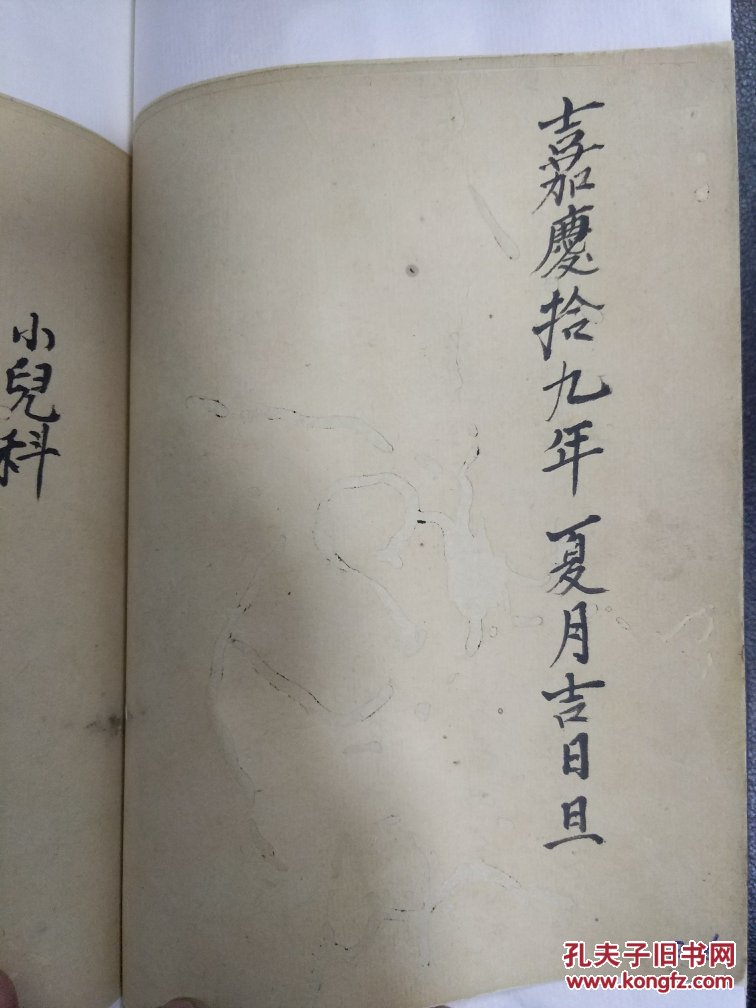 嘉慶拾九年 夏月吉日旦
小兒科
孔夫子旧书网
www.kongfz.com